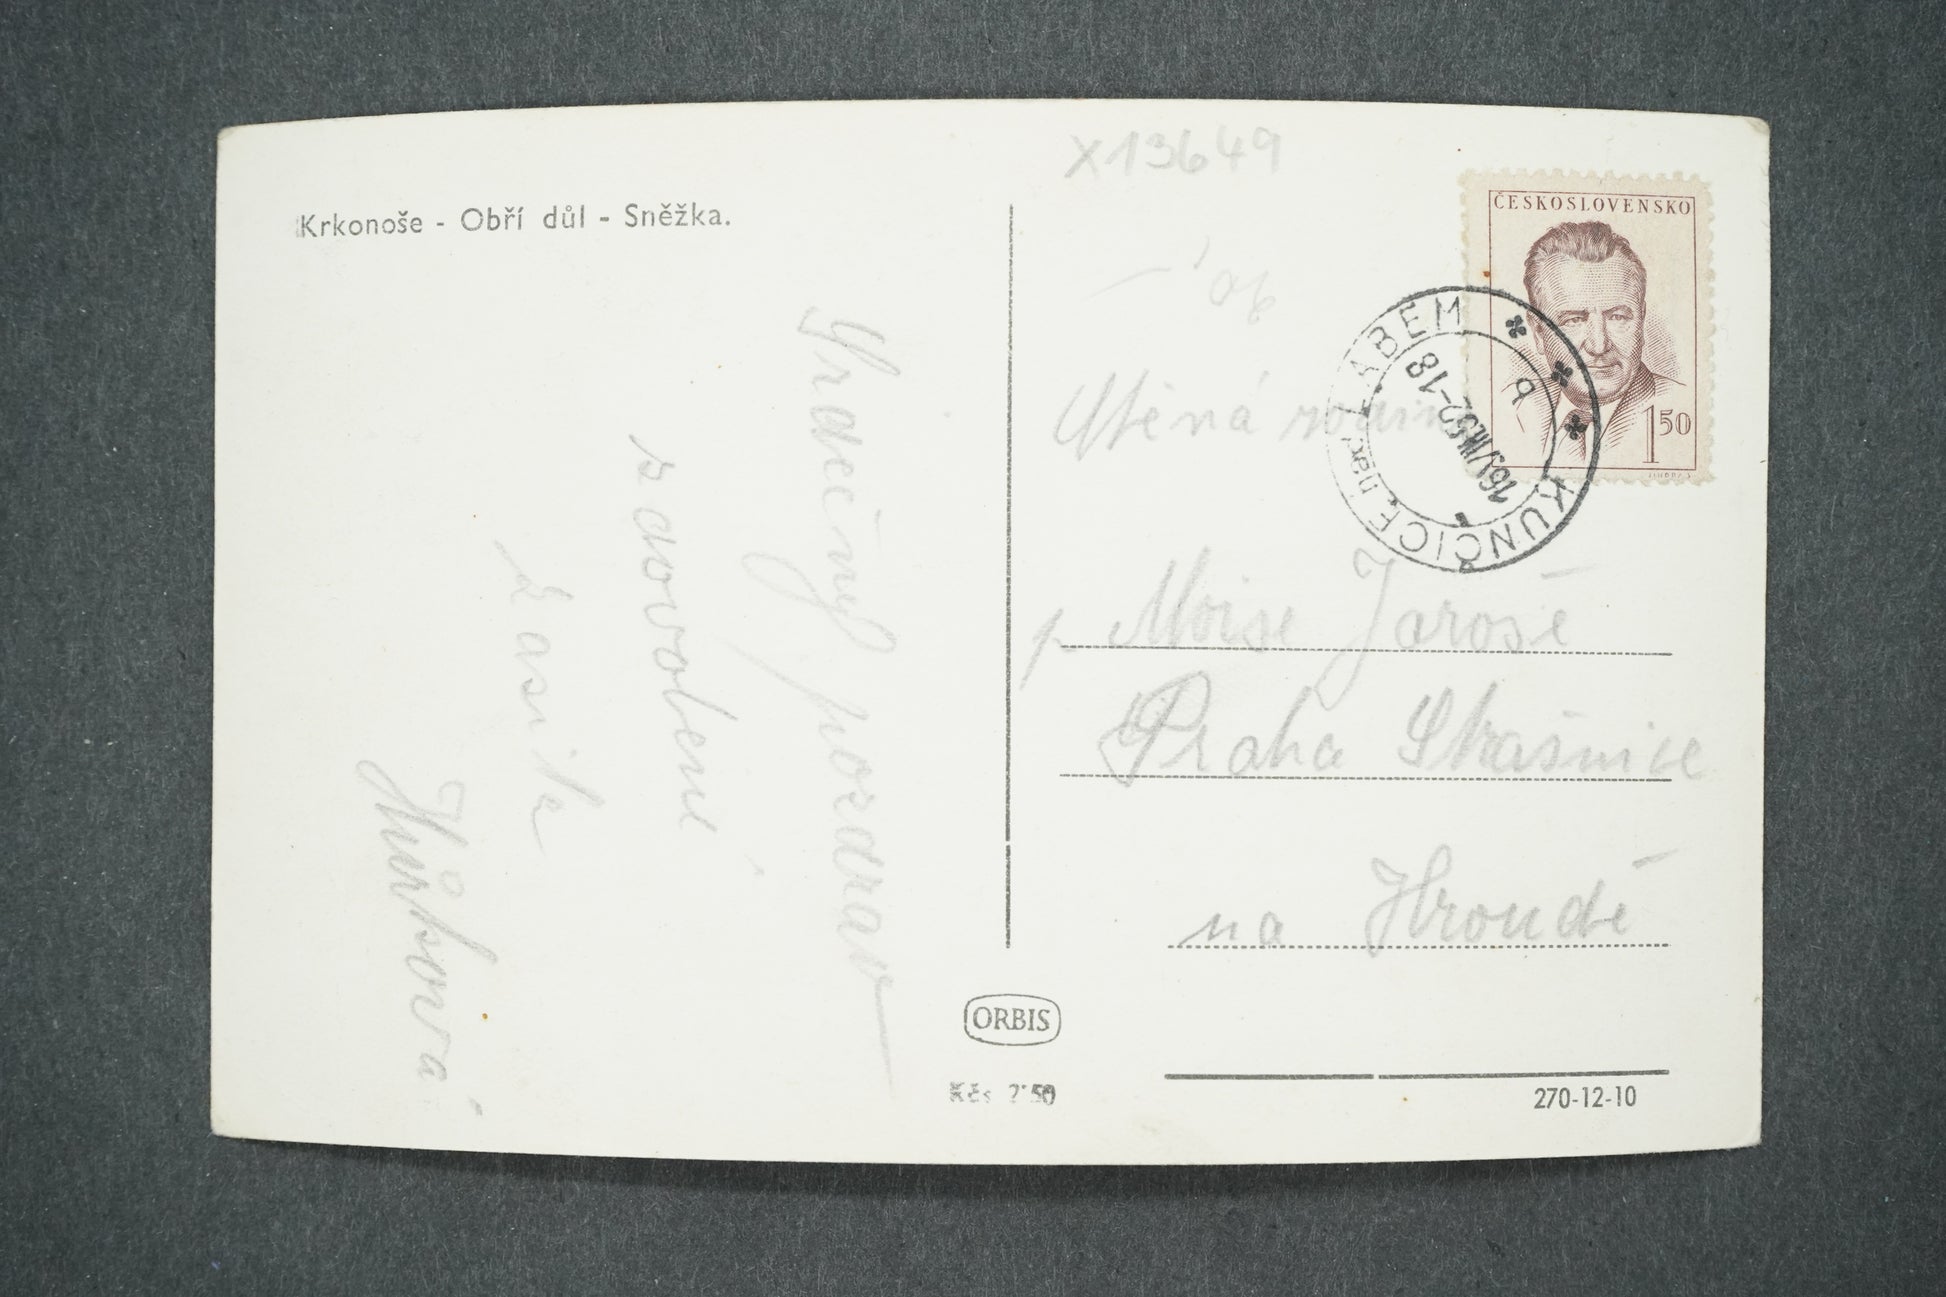 Krkonoše - Obří důl - Sněžka.
X13649
ČESKOSLOVENSKO
1 50
KUNČICE nad LABEM
16.VIII.52-18
b
Srdečný pozdrav
z dovolené
Hůlková
Ctěná
p. Jaroš
Praha Strašnice
na Hroudě
ORBIS
Kčs 2·50
270-12-10